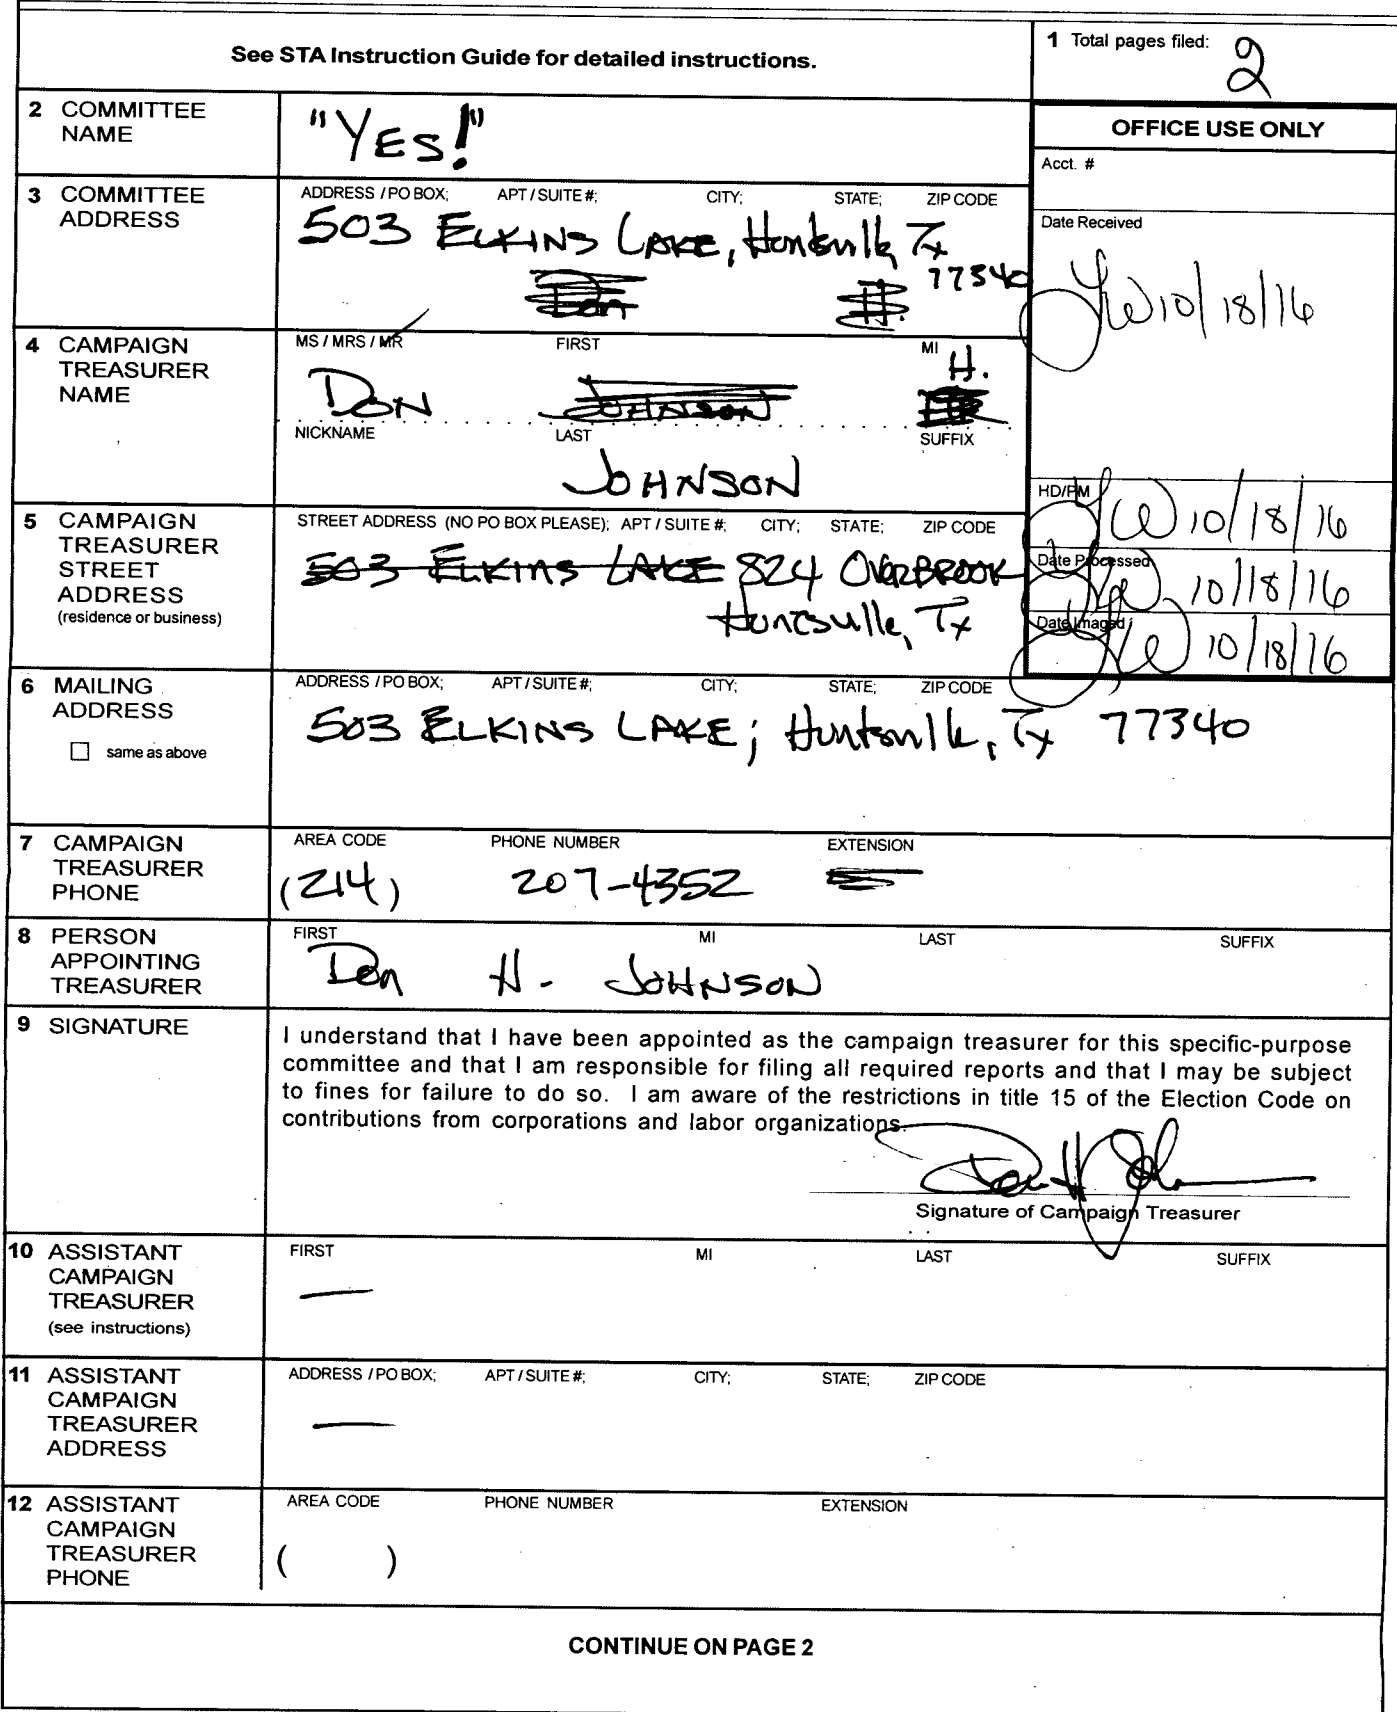 See STA Instruction Guide for detailed instructions.
1 Total pages filed:
2
2 COMMITTEE
NAME
"YES!"
OFFICE USE ONLY
Acct. #
3 COMMITTEE
ADDRESS
ADDRESS / PO BOX; APT / SUITE #; CITY; STATE; ZIP CODE
503 ELKINS LAKE, Huntsville, Tx
77340
Don H.
Date Received
10/18/16
4 CAMPAIGN
TREASURER
NAME
MS / MRS / MR FIRST MI
H.
DON JOHNSON
NICKNAME LAST SUFFIX
JOHNSON
HD/PM
10/18/16
5 CAMPAIGN
TREASURER
STREET
ADDRESS
(residence or business)
STREET ADDRESS (NO PO BOX PLEASE); APT / SUITE #; CITY; STATE; ZIP CODE
503 ELKINS LAKE 824 OVERBROOK
Huntsville, Tx
Date Processed
10/18/16
Date Imaged
10/18/16
6 MAILING
ADDRESS
same as above
ADDRESS / PO BOX; APT / SUITE #; CITY; STATE; ZIP CODE
503 ELKINS LAKE; Huntsville, Tx 77340
7 CAMPAIGN
TREASURER
PHONE
AREA CODE PHONE NUMBER EXTENSION
(214) 207-4352
8 PERSON
APPOINTING
TREASURER
FIRST MI LAST SUFFIX
Don H. JOHNSON
9 SIGNATURE
I understand that I have been appointed as the campaign treasurer for this specific-purpose
committee and that I am responsible for filing all required reports and that I may be subject
to fines for failure to do so. I am aware of the restrictions in title 15 of the Election Code on
contributions from corporations and labor organizations.
Don H Joh
Signature of Campaign Treasurer
10 ASSISTANT
CAMPAIGN
TREASURER
(see instructions)
FIRST MI LAST SUFFIX
—
11 ASSISTANT
CAMPAIGN
TREASURER
ADDRESS
ADDRESS / PO BOX; APT / SUITE #; CITY; STATE; ZIP CODE
—
12 ASSISTANT
CAMPAIGN
TREASURER
PHONE
AREA CODE PHONE NUMBER EXTENSION
( )
CONTINUE ON PAGE 2